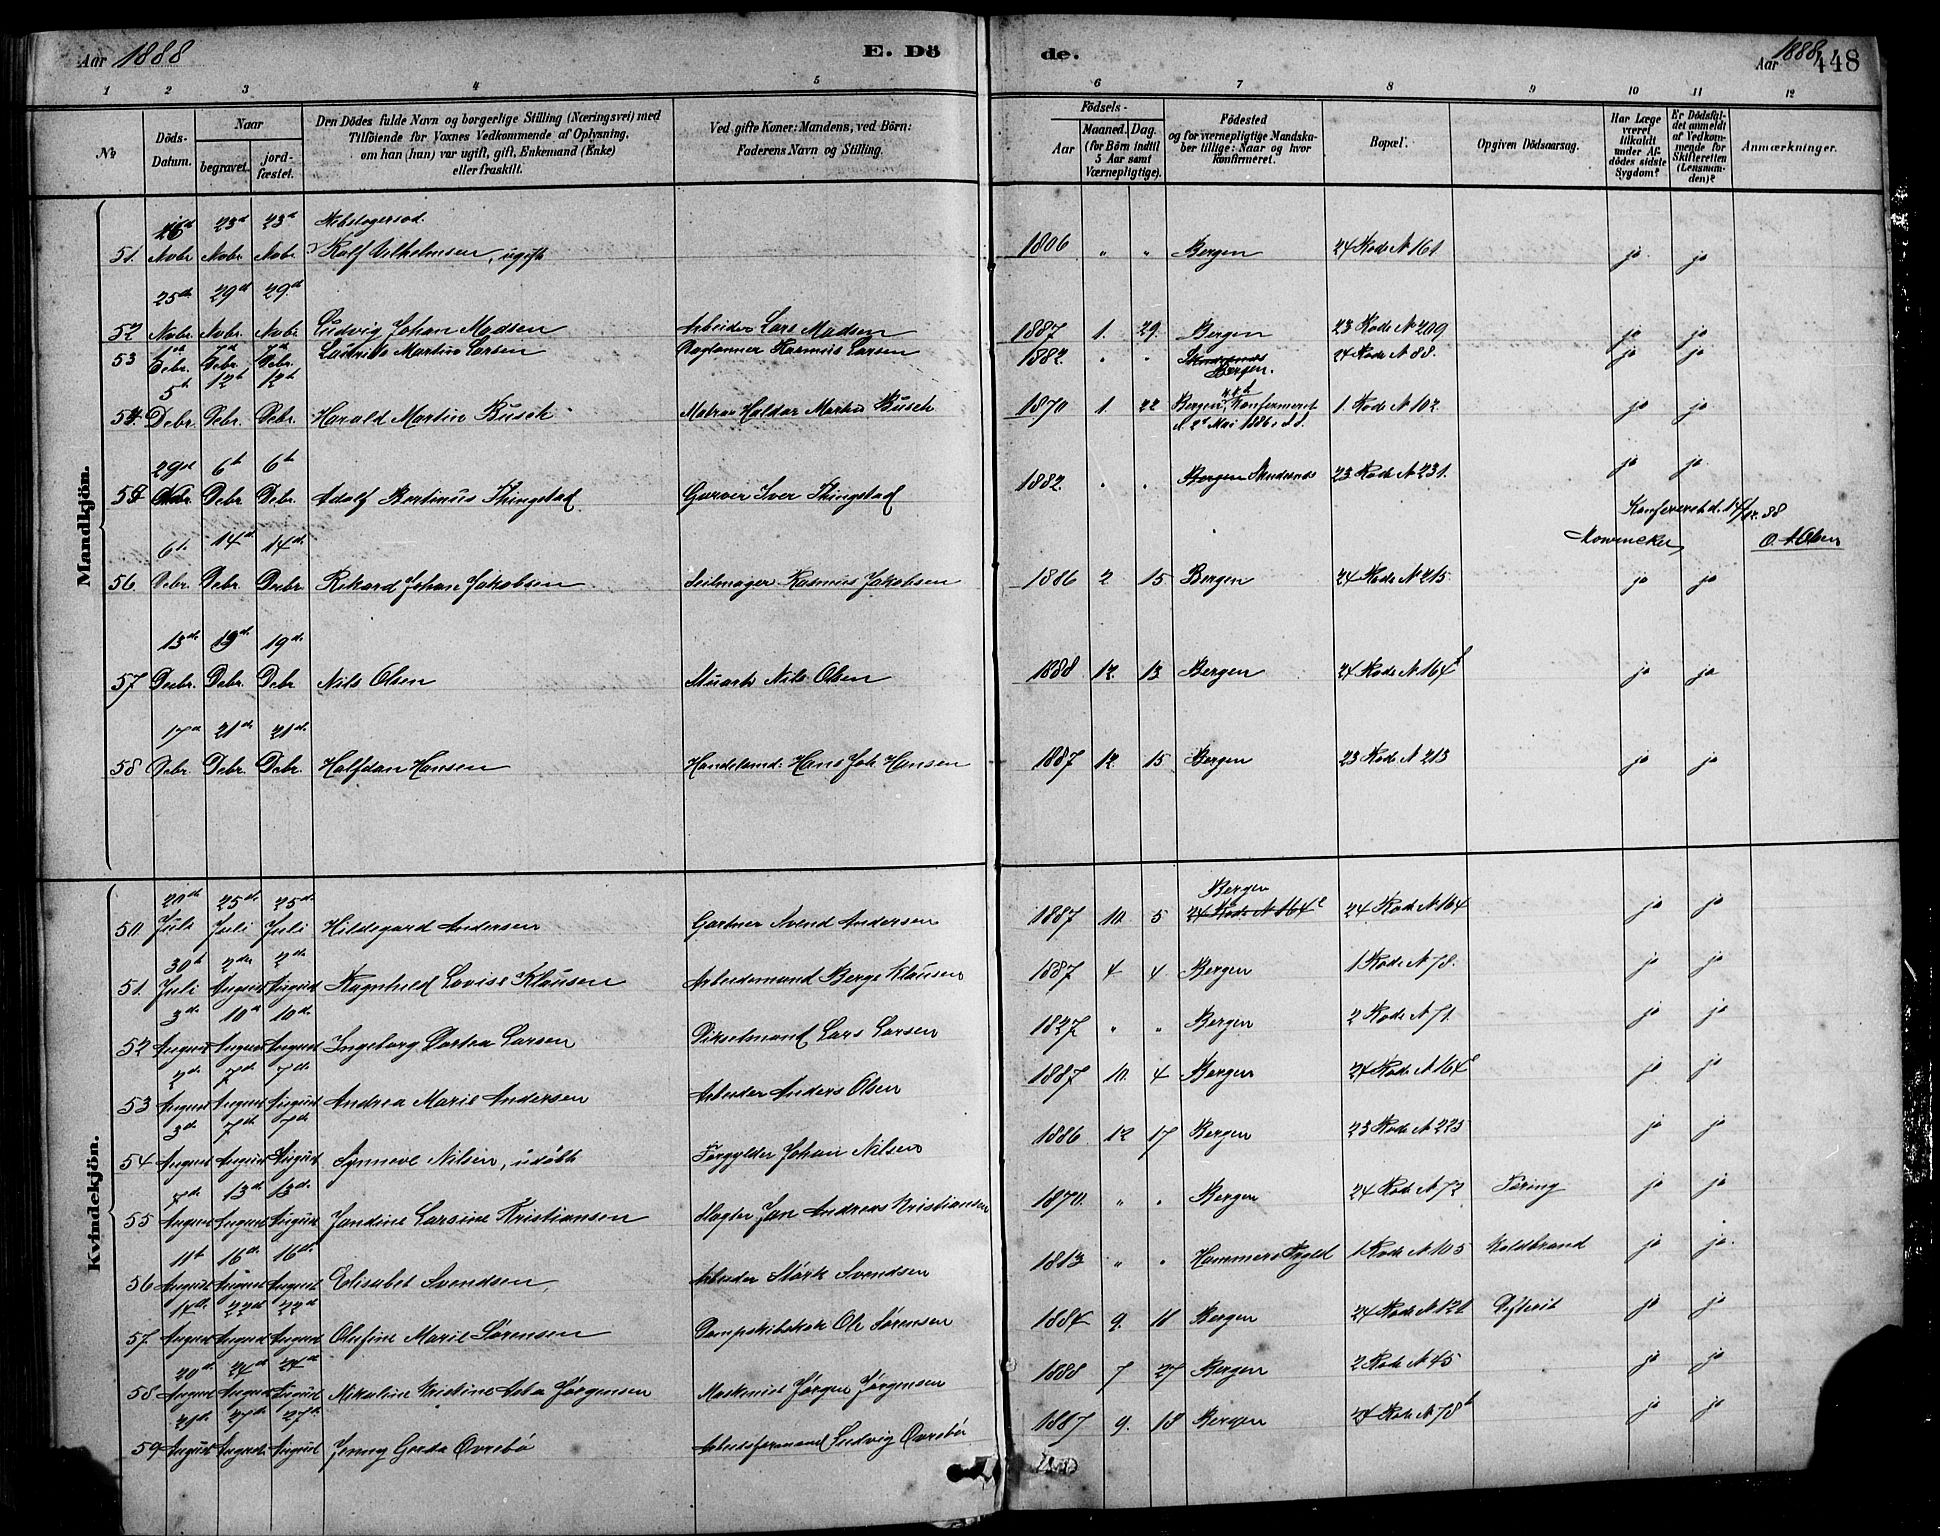 Aar 1888
E. Dö
de.
Aar 1888,
448
1 2 3 4 5 6 7 8 9 10 11 12
No
Döds-
Datum.
Naar
begravet.
jord-
fæstet.
Den Dödes fulde Navn og borgerlige Stilling (Næringsvei) med
Tilföiende for Voxnes Vedkommende af Oplysning,
om han (hun) var ugift, gift, Enkemand (Enke)
eller fraskilt.
Ved gifte Koner: Mandens, ved Börn:
Faderens Navn og Stilling.
Födsels-
Aar
Maaned.
Dag.
(for Börn indtil
5 Aar samt
Værnepligtige).
Födested
og for værnepligtige Mandska-
ber tillige: Naar og hvor
konfirmeret.
Bopæl.
Opgiven Dödsaarsag.
Har Læge
været
tilkaldt
under Af-
dödes sidste
Sygdom?
Er Dödsfal-
det anmeldt
af Vedkom-
mende for
Skifteretten
(Lensman-
den)?
Anmærkninger.
Mandkjön.
51. 16d Nobr. 23d Nobr. 23d Nobr. Rolf Vilhelmsen, ugift 1806 " " Bergen 24 Rode N 161 ja ja
52 25de Nobr. 29d Nobr. 29d Nobr. Ludvig Johan Madsen Arbeider Lars Madsen 1887 1. 29. Bergen 23 Rode N 209 ja ja
53 Debr. 7d Debr. 7d Debr. Martin Larsen Daglønner Rasmus Larsen 1882. " " Bergen. 24 Rode N 88. ja ja
54. 5t Debr. 12t Debr. 12t Debr. Harald Martin Busch Matros Haldor Martin Busch 1870 1. 22 Bergen, Konfirmeret d. 2d Mai 1886 1. Rode N 102. ja ja
55 29de 6t Debr. 6t Debr. Adolf Bertinus Thingstad Garver Iver Thingstad 1882. " " Bergen 23 Rode N 231. ja ja
Konfereret d. 14/12. 88
O. A Olsen
56. 6t. Debr. 14de Debr. 14de Debr. Rikard Johan Jakobsen Seilmager Rasmus Jakobsen 1886 2 15 Bergen 24 Rode N 215 ja ja
57 13de Debr. 19de Debr. 19de Debr Nils Olsen Stuart Nils Olsen 1888 12. 13 Bergen 24 Rode N 164 ja ja
58 17d Debr. 21de Debr. 21de Debr. Halfdan Hansen Handelsmd: Hans Joh. Hansen 1887 12. 15 Bergen 23 Rode N 213 ja ja
Kvindekjön.
50 20de Juli 25de Juli 25de Juli Hildegard Andersen Gartner Svend Andersen 1887 10. 5 Bergen 24 Rode N 164 24 Rode N 164 ja ja
51. 30t Juli 2de August 2de August Ragnhild Lovise Klausen Arbeidsmand Berge Klausen 1887 4 4 Bergen 1 Rode N 78. ja ja
52 3de August 10d August 10de August Ingeborg Dortea Larsen Pikselmand Lars Larsen 1827 " " Bergen 2 Rode N 71. ja ja
53 2de August 7de August 7de August Andrea Marie Andersen Arbeider Anders Olsen 1887 10. 4 Bergen 24 Rode N 164 ja ja
54 3de August 7de August 7de August Synneve Nilsen, udøbt Forgylder Johan Nilsen 1886 12 17 Bergen 23 Rode N 223 ja ja
55 7de August 13d August 13de August Jandine Larsine Kristiansen Slagter Jan Andreas Kristiansen 1870. " " Bergen 24 Rode N 72 Tæring ja ja
56 11t August 16de August 16de August Elisabet Svendsen, Arbeider Størk Svendsen 1813 " " Hammers Prgld 1 Rode N 105 Koldbrand ja ja.
57. 17de August 22de August 22de August Olufine Marie Sørensen Dampskibskok Ol. Sørensen 1884 9. 18 Bergen 24 Rode N 121 ja ja
58 20de August 24de August 24de August Nikoline Kristine Asta Jørgensen Maskinist Jørgen Jørgensen 1888 7 27 Bergen 2 Rode N 45 ja ja
59 21de August 27de August 27de August Jenny Gerda Øvrebø Arbeidsformand Ludvig Øvrebø 1887 9. 18 Bergen 24 Rode N 78b ja ja